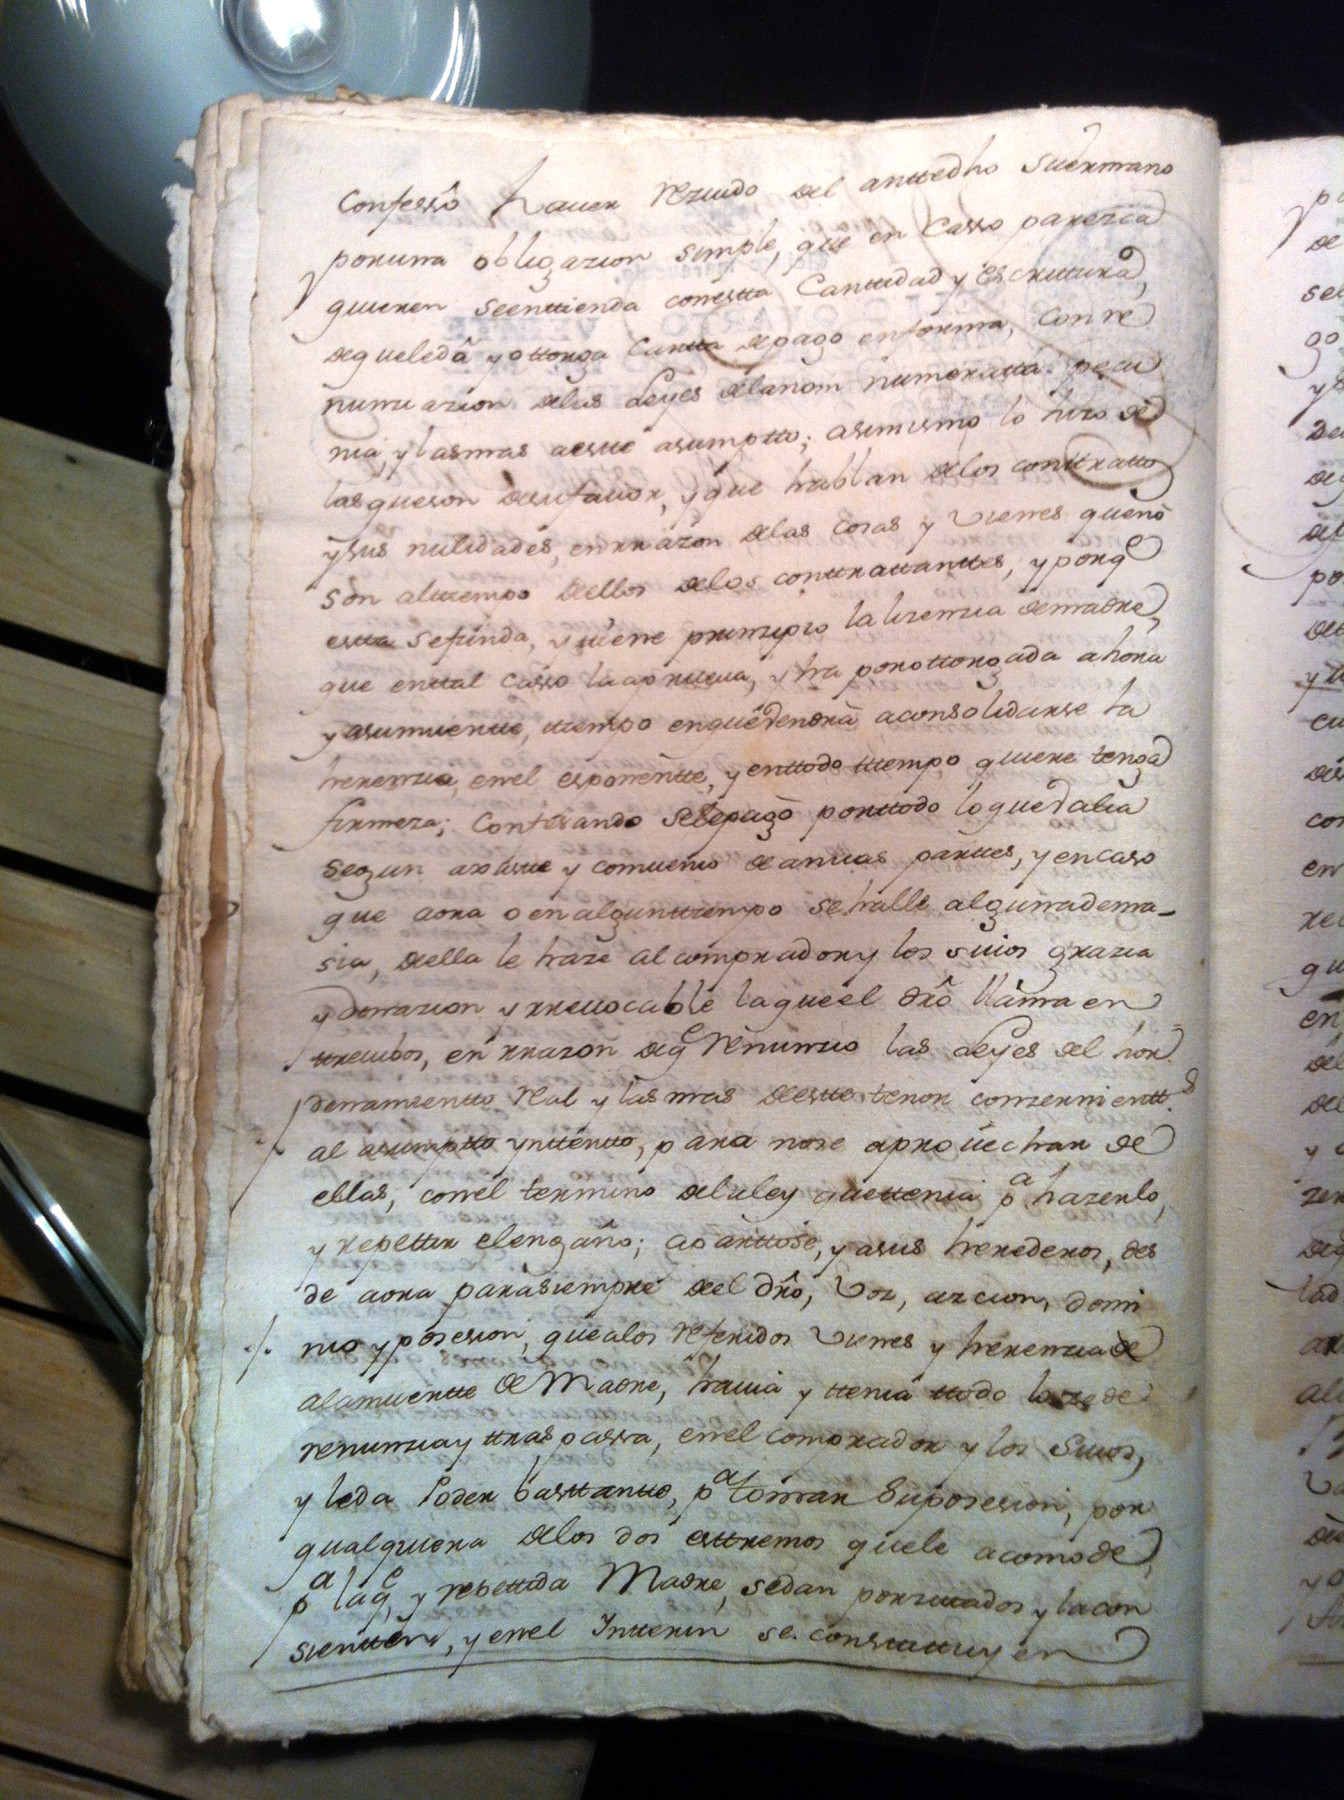 Confessô hauer rezuido del anttedho suermano
poruna obligazion simple, que en casso parezca
quieren seenttienda conestta Canttidad y Escrittura,
dequeledâ y ottorga Cartta depago enforma, con re
nunuazion delas Leyes delanon numeratta pecu
nia, y lasmas aeste asumptto; asimismo lo hizo de
lasqueson desufauor, y que hablan delos conttratto
ysus nulidades, enrrazon delas cosas y vienes queno
son alttiempo dellos delos conttrattanttes, y porq^e
estta sefunda, y tiene prinzipio la lizenzia demadre,
que enttal casso laaprueua, y ha porottorgada ahora
y asumuertte, ttiempo enquêvendrâ aconsolidarse la
herenzia, enel esponentte, y enttodo ttiempo quiere tenga
firmeza; Confesando selepagò porttodo loquedalia
segun axuste y comuenio deamuas parttes, y encaso
que aora o enalgunttiempo sehalle algunadema-
sia, della le haze al comprador y los suios grazia
y donazion yrreuocable laqueel drô llama en
treuibos, en rrazon deq^e renunzio las Leyes del hor
denamientto real y lasmas destte tenor conzernientt^s
al asumptto ynttentto, para nose aprouechar de
ellas, conel termino delaley quettenia p^a hazerlo,
y repettir elengaño; apartto se, y asus herederos, des
de aora parasiempre del drô, voz, azcion, domi
nio y posesion, quealos referidos vienes y herenzia de
alamuertte de Madre, hauia y ttenia ttodo lozede
renunzia y ttraspassa, enel comprador y los suios,
y leda Poder basttantte, p^a tomar suposesion, por
qualquiera delos dos esttremos quele acomode,
p^a laq^e, y repettida Madre, sedan porzittados y lacon
sientten, y enel Ynterin se consttituyen